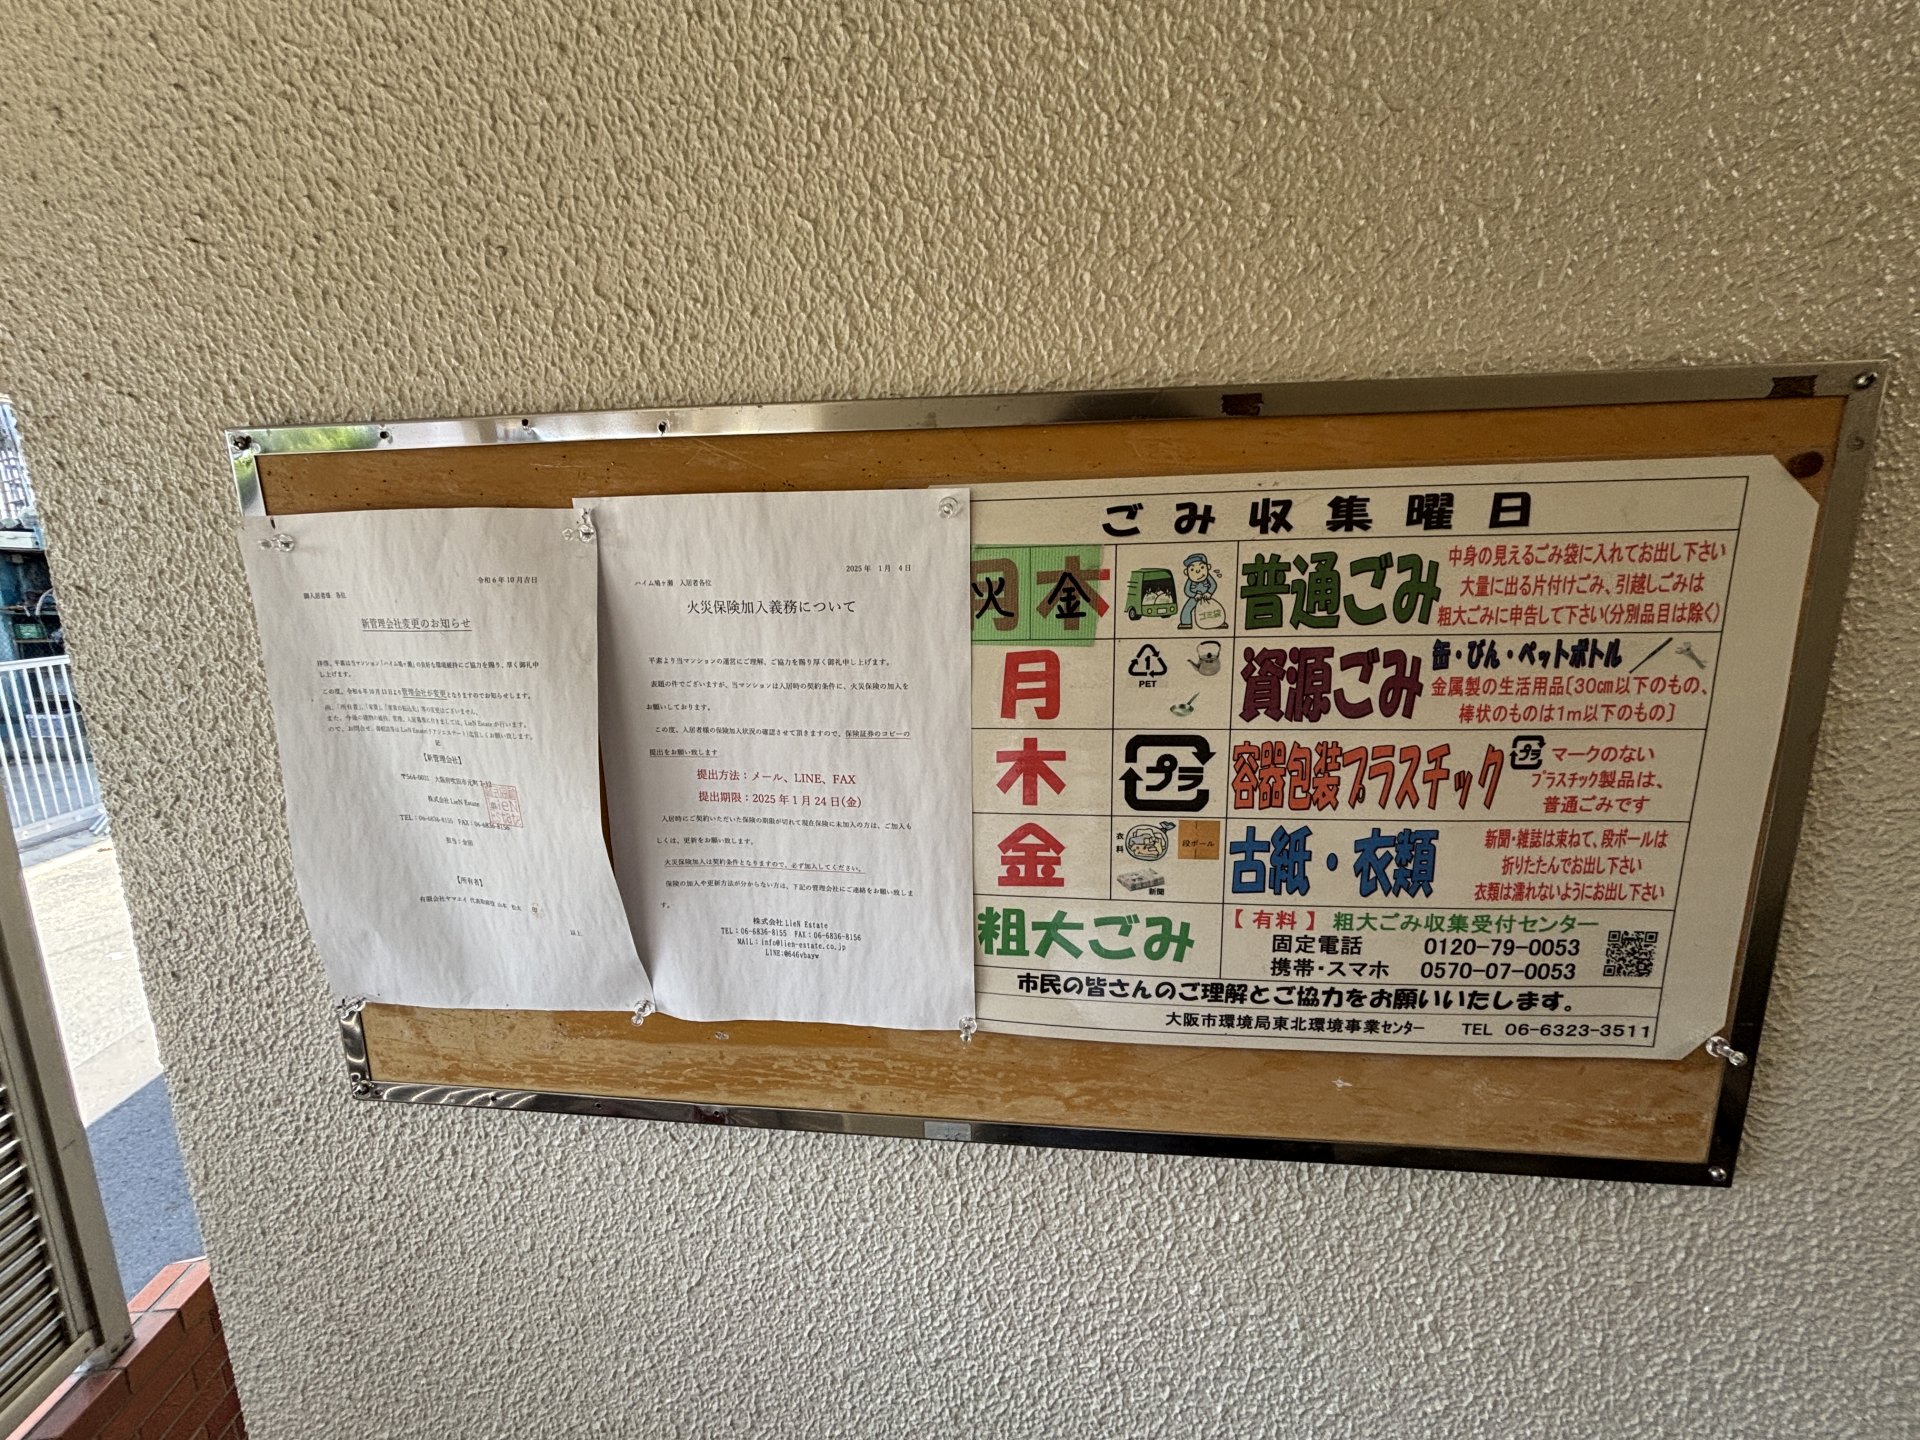 令和6年10月吉日
御入居者様 各位
新管理会社変更のお知らせ
拝啓、平素は当マンション「ハイム鳩ヶ瀬」の良好な環境維持にご協力を賜り、厚く御礼申
し上げます。
この度、令和6年10月15日より管理会社が変更となりますのでお知らせします。
尚、「所有者」、「家賃」、「家賃の振込先」等の変更はございません。
また、今後の建物の維持、管理、入居募集に付きましては、LieN Estateが行います。
ので、お問合せ、御相談等はLieN Estate(リアンエステート)迄宜しくお願い致します。
記
【新管理会社】
〒564-0031 大阪府吹田市元町
株式会社 LieN Estate
TEL:06-6836-8155 FAX:06-6836-8156
担当:金田
【所有者】
有限会社ヤマエイ 代表取締役 山本
以上
2025年 1月 4日
ハイム鳩ヶ瀬 入居者各位
火災保険加入義務について
平素より当マンションの運営にご理解、ご協力を賜り厚く御礼申し上げます。
表題の件でございますが、当マンションは入居時の契約条件に、火災保険の加入を
お願いしております。
この度、入居者様の保険加入状況の確認させて頂きますので、保険証券のコピーの
提出をお願い致します
提出方法:メール、LINE、FAX
提出期限:2025年1月24日(金)
入居時にご契約いただいた保険の期限が切れて現在保険に未加入の方は、ご加入も
しくは、更新をお願い致します。
火災保険加入は契約条件となりますので、必ず加入してください。
保険の加入や更新方法が分からない方は、下記の管理会社にご連絡をお願い致しま
す。
株式会社 LieN Estate
TEL:06-6836-8155 FAX:06-6836-8156
MAIL:info@lien-estate.co.jp
LINE:@646vbayw
ごみ収集曜日
火 金
ゴミ袋
普通ごみ
中身の見えるごみ袋に入れてお出し下さい
大量に出る片付けごみ、引越しごみは
粗大ごみに申告して下さい(分別品目は除く)
月
1
PET
資源ごみ
缶・びん・ペットボトル
金属製の生活用品〔30cm以下のもの、
棒状のものは1m以下のもの〕
木
プラ
容器包装プラスチック
プラ マークのない
プラスチック製品は、
普通ごみです
金
衣料
段ボール
新聞
古紙・衣類
新聞・雑誌は束ねて、段ボールは
折りたたんでお出し下さい
衣類は濡れないようにお出し下さい
粗大ごみ
【有料】 粗大ごみ収集受付センター
固定電話 0120-79-0053
携帯・スマホ 0570-07-0053
市民の皆さんのご理解とご協力をお願いいたします。
大阪市環境局東北環境事業センター TEL 06-6323-3511